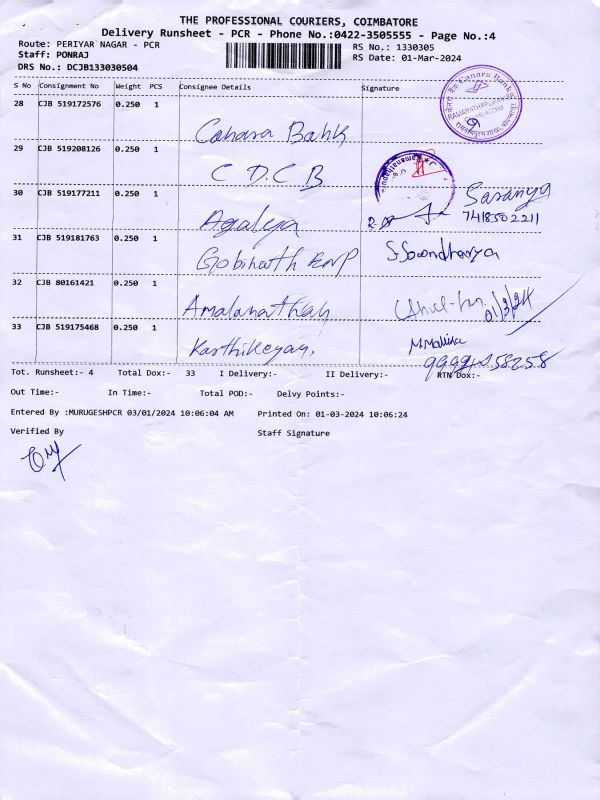 THE PROFESSIONAL COURIERS, COIMBATORE
Delivery Runsheet - PCR - Phone No.:0422-3505555 - Page No.:4
Route: PERIYAR NAGAR - PCR
RS No.: 1330305
Staff: PONRAJ
RS Date: 01-Mar-2024
DRS No.: DCJB133030504
S No Consignment No Weight PCS Consignee Details Signature
28 CJB 519172576 0.250 1
Canara Bank
Canara Bank
29 CJB 519208126 0.250 1
C D.C B
30 CJB 519177211 0.250 1
Saranya
7418502211
Agalya
31 CJB 519181763 0.250 1
S Soundharya
Gobinath
32 CJB 80161421 0.250 1
01/3/24
Amalanathan
33 CJB 519175468 0.250 1
Karthikeyan,
Tot. Runsheet:- 4 Total Dox:- 33 I Delivery:- II Delivery:- RTN Dox:-
Out Time:- In Time:- Total POD:- Delvy Points:-
Entered By :MURUGESHPCR 03/01/2024 10:06:04 AM Printed On: 01-03-2024 10:06:24
Verified By Staff Signature